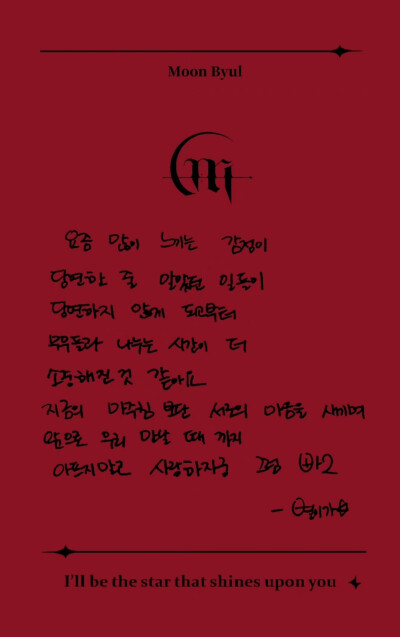 Moon Byul
요즘 많이 느끼는 감정이
당연한 줄 알았던 일들이
당연하지 않게 되고부터
무무들과 나누는 시간이 더
소중해진 것 같아요
지금의 마주침 보단 서로의 마음을 새기며
앞으로 우리 만날 때 까지
아프지말고 사랑하자궁
I'll be the star that shines upon you